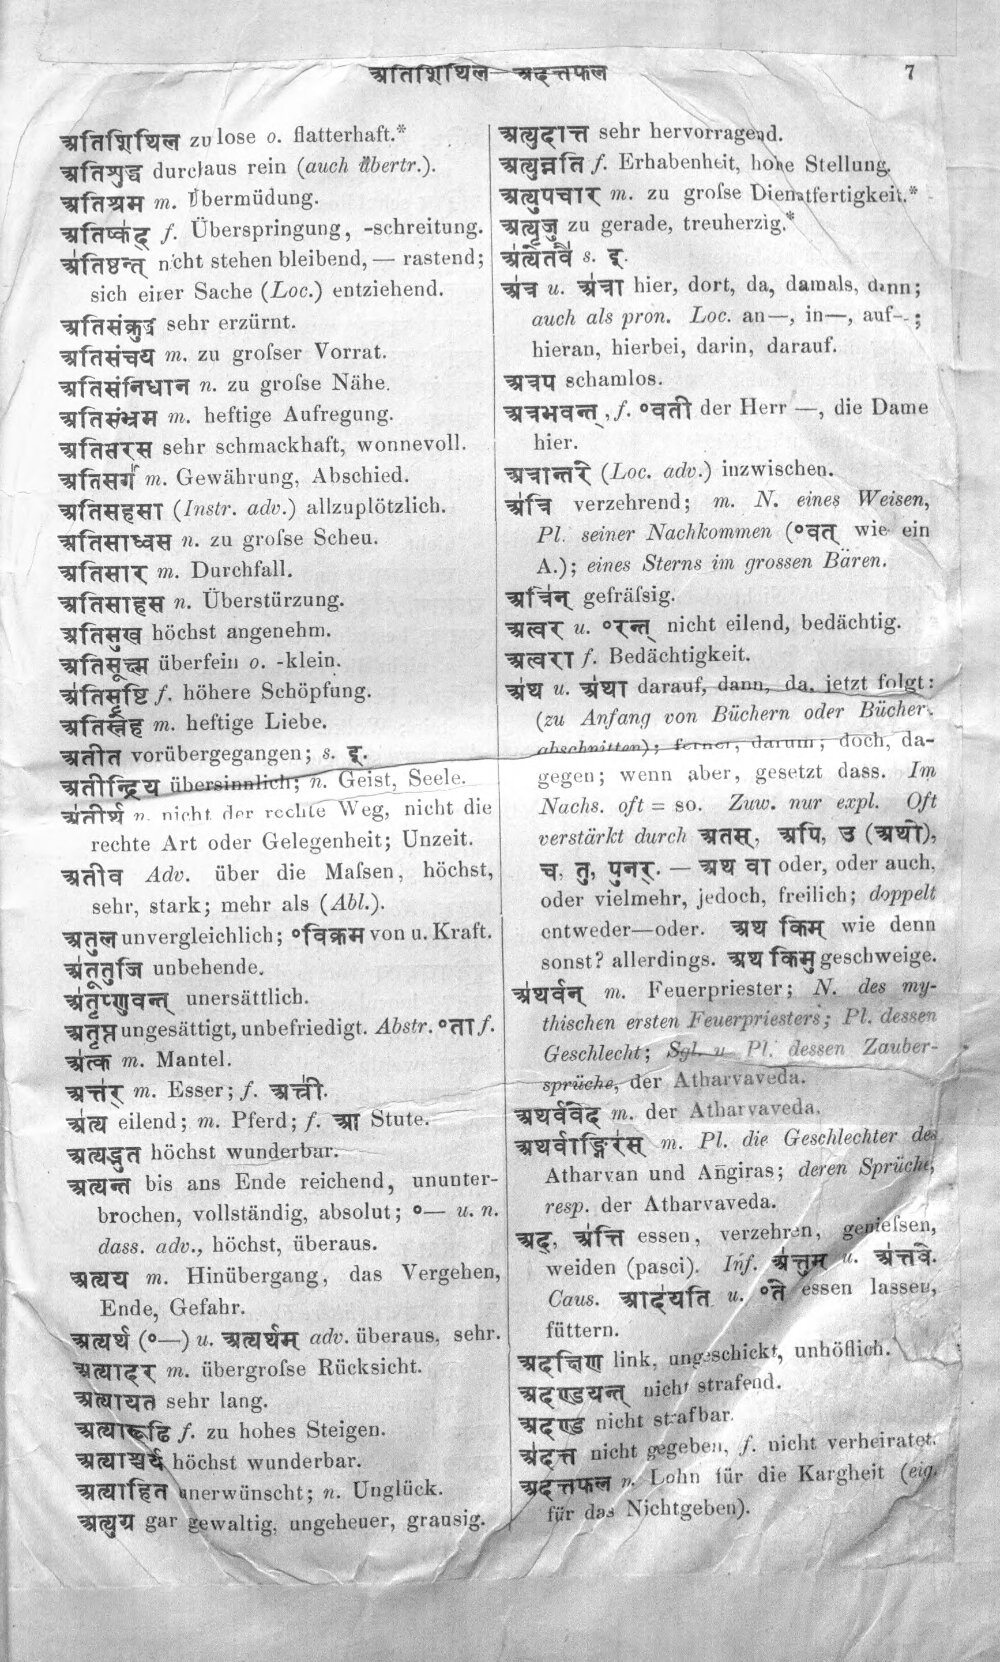 अतिशिथिल — अदत्तफल 7
अतिशिथिल zu lose o. flatterhaft.*
अतिशुद्ध durchaus rein (auch übertr.).
अतिश्रम m. Übermüdung.
अतिष्कद् f. Überspringung, -schreitung.
अतिष्ठन्त् nicht stehen bleibend, — rastend;
sich einer Sache (Loc.) entziehend.
अतिसंक्रुद्ध sehr erzürnt.
अतिसंचय m. zu groſser Vorrat.
अतिसंनिधान n. zu groſse Nähe.
अतिसंभ्रम m. heftige Aufregung.
अतिसरस sehr schmackhaft, wonnevoll.
अतिसर्ग m. Gewährung, Abschied.
अतिसहसा (Instr. adv.) allzuplötzlich.
अतिसाध्वस n. zu groſse Scheu.
अतिसार m. Durchfall.
अतिसाहस n. Überstürzung.
अतिसुख höchst angenehm.
अतिसूक्ष्म überfein o. -klein.
अतिसृष्टि f. höhere Schöpfung.
अतिस्नेह m. heftige Liebe.
अतीत vorübergegangen; s. इ.
अतीन्द्रिय übersinnlich; n. Geist, Seele.
अतीर्थ n. nicht der rechte Weg, nicht die
rechte Art oder Gelegenheit; Unzeit.
अतीव Adv. über die Maſsen, höchst,
sehr, stark; mehr als (Abl.).
अतुल unvergleichlich; °विक्रम von u. Kraft.
अतूतुजि unbehende.
अतृप्णुवन्त् unersättlich.
अतृप्त ungesättigt, unbefriedigt. Abstr. °ता f.
अत्क m. Mantel.
अत्तर् m. Esser; f. अत्त्री.
अत्य eilend; m. Pferd; f. आ Stute.
अत्यद्भुत höchst wunderbar.
अत्यन्त bis ans Ende reichend, ununter-
brochen, vollständig, absolut; °— u. n.
dass. adv., höchst, überaus.
अत्यय m. Hinübergang, das Vergehen,
Ende, Gefahr.
अत्यर्थ (°—) u. अत्यर्थम् adv. überaus, sehr.
अत्यादर m. übergroſse Rücksicht.
अत्यायत sehr lang.
अत्यारूढि f. zu hohes Steigen.
अत्याश्चर्य höchst wunderbar.
अत्याहित unerwünscht; n. Unglück.
अत्युग्र gar gewaltig, ungeheuer, grausig.
अत्युदात्त sehr hervorragend.
अत्युन्नति f. Erhabenheit, hohe Stellung.
अत्युपचार m. zu groſse Dienstfertigkeit.*
अत्यृजु zu gerade, treuherzig.*
अत्येतवै s. इ.
अत्र u. अत्रा hier, dort, da, damals, dann;
auch als pron. Loc. an—, in—, auf—;
hieran, hierbei, darin, darauf.
अत्रप schamlos.
अत्रभवन्त्, f. °वती der Herr —, die Dame
hier.
अत्रान्तरे (Loc. adv.) inzwischen.
अत्रि verzehrend; m. N. eines Weisen,
Pl. seiner Nachkommen (°वत् wie ein
A.); eines Sterns im grossen Bären.
अत्रिन् gefräſsig.
अत्वर u. °रन्त् nicht eilend, bedächtig.
अत्वरा f. Bedächtigkeit.
अथ u. अथा darauf, dann, da, jetzt folgt:
(zu Anfang von Büchern oder Bücher-
abschnitten); ferner, darum; doch, da-
gegen; wenn aber, gesetzt dass. Im
Nachs. oft = so. Zuw. nur expl. Oft
verstärkt durch अतस्, अपि, उ (अथो),
च, तु, पुनर्. — अथ वा oder, oder auch,
oder vielmehr, jedoch, freilich; doppelt
entweder—oder. अथ किम् wie denn
sonst? allerdings. अथ किमु geschweige.
अथर्वन् m. Feuerpriester; N. des my-
thischen ersten Feuerpriesters; Pl. dessen
Geschlecht; Sgl. u. Pl. dessen Zauber-
sprüche, der Atharvaveda.
अथर्ववेद m. der Atharvaveda.
अथर्वाङ्गिरस् m. Pl. die Geschlechter des
Atharvan und Añgiras; deren Sprüche,
resp. der Atharvaveda.
अद्, अत्ति essen, verzehren, genieſsen,
weiden (pasci). Inf. अत्तुम् u. अत्तवे.
Caus. आदयति u. °ते essen lassen,
füttern.
अदक्षिण link, ungeschickt, unhöflich.
अदण्डयन्त् nicht strafend.
अदण्ड्य nicht strafbar.
अदत्त nicht gegeben, f. nicht verheiratet.
अदत्तफल n. Lohn für die Kargheit (eig.
für das Nichtgeben).